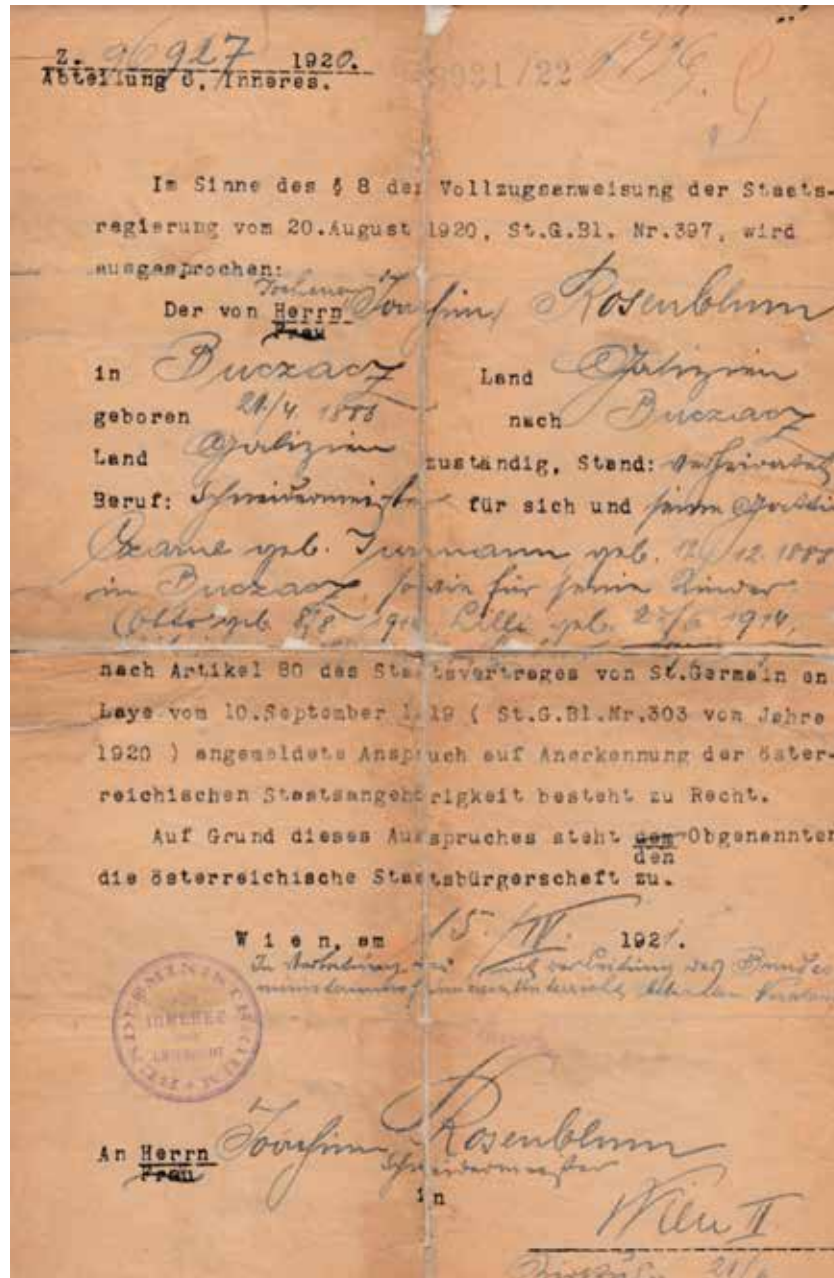 Z. 96927 1920.
Abteilung 6, Inneres.
8981/22
Im Sinne des § 8 der Vollzugsanweisung der Staats-
regierung vom 20.August 1920, St.G.Bl. Nr.397, wird
ausgesprochen:
Der von Herrn Joachim Rosenblum
Frau
in Buczacz Land Galizien
geboren 1886 nach Buczacz
Land Galizien zuständig, Stand: verheiratet
Beruf: Schneidermeister für sich und seine Gattin
Czarne geb. geb. 12. 1888
in Buczacz, sowie für seine Kinder
Otto geb. 8/8 Lilli geb. 1914,
nach Artikel 80 des Staatsvertrages von St.Germain en
Laye vom 10.September 1919 ( St.G.Bl.Nr.303 vom Jahre
1920 ) angemeldete Anspruch auf Anerkennung der öster-
reichischen Staatsangehörigkeit besteht zu Recht.
Auf Grund dieses Ausspruches steht dem Obgenannten
den
die österreichische Staatsbürgerschaft zu.
Wien, am 15. IV. 1921.
BUNDESMINISTERIUM
INNERES
UNTERRICHT
An Herrn Joachim Rosenblum
Frau Schneidermeister
in
Wien II